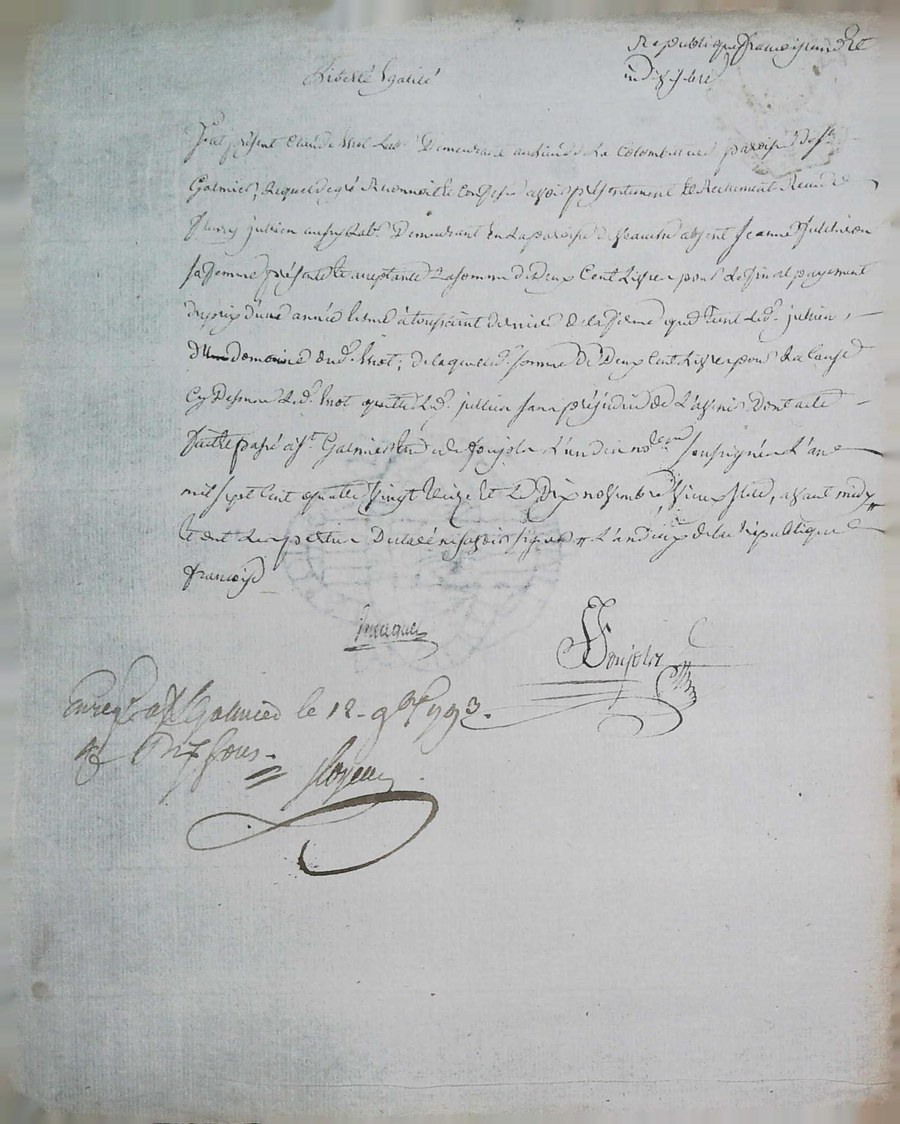 Republique francoise une Et
Liberté Egalité
indivisible
fut présent Claude Viot Lab.r Demeurant au lieu de La Colombe paroisse de S.t
Galmier, Lequel de gré Reconnoit Et Confesse avoir présentement Et Reellement Recu de
fleury jullien aussy Lab.r Demeurant En La paroisse de Veauche absent Jeanne
sa femme présente Et acceptante La somme de Deux Cent Livres pour Le final payement
du prix d'une année Echue à toussaint dernier de La ferme que tient Led. jullien,
d'un domaine dud. Viot; de laquelle somme de Deux Cent Livres pour La Cause
Cy Dessus Led. Viot quitte Led. jullien sans préjudice de L'avenir Dont acte
fait Et passé à S.t Galmier Etude de foujols L'un des no.res soussignés L'an
mil sept Cent quatre Vingt treize Et Le Dix novembre Vieux stile, avant midy
Et ont Les parties Declaré ne savoir signer L'an deux de la République
francoise
foujols
Enreg.é à S.t Galmier le 12 9bre 1793.
R. Dix sous